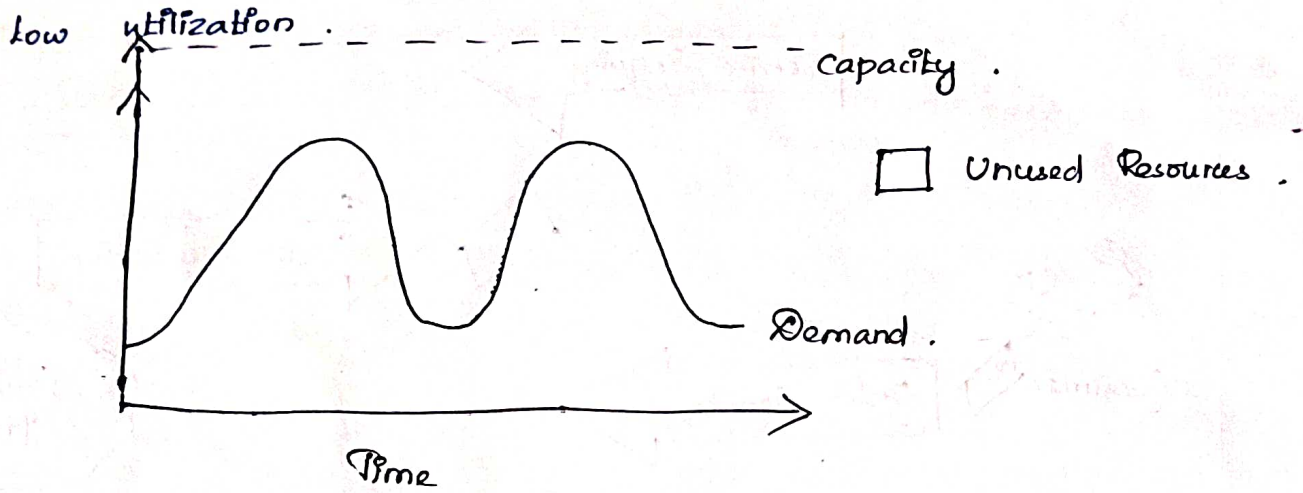 Low utilization.
Capacity.
Unused Resources.
Demand.
Time